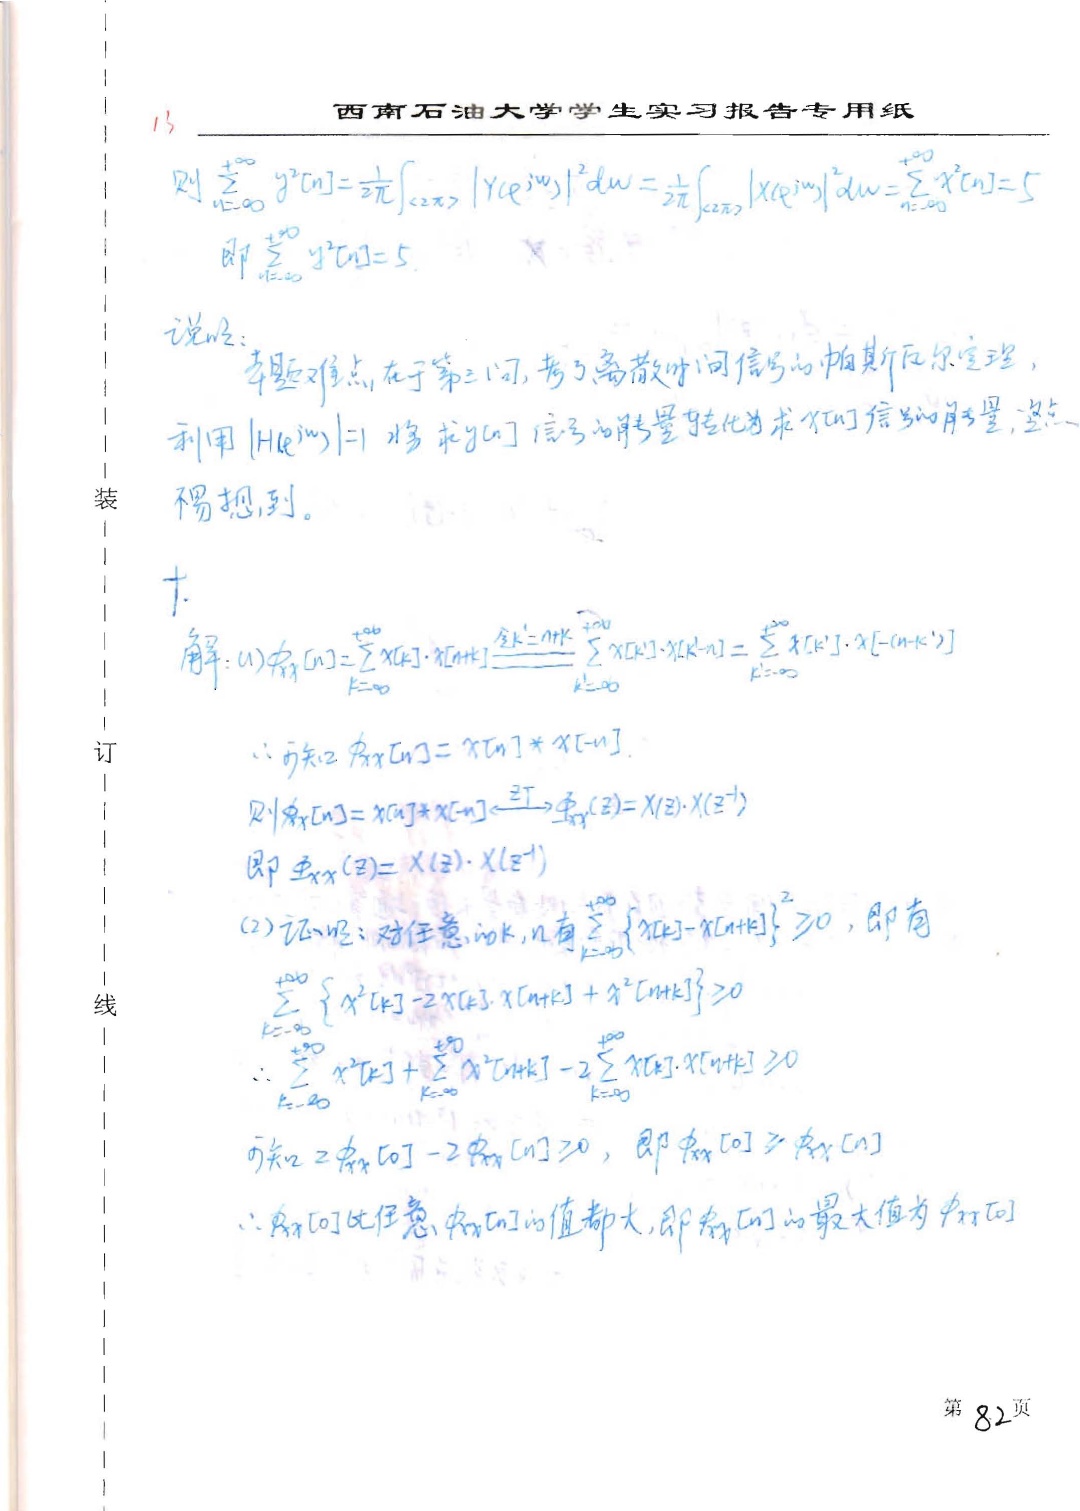 西南石油大学学生实习报告专用纸
13
则 ∑_{n=-∞}^{+∞} y²[n] = 1/2π ∫_{<2π>} |Y(e^{jw})|² dw = 1/2π ∫_{<2π>} |X(e^{jw})|² dw = ∑_{n=-∞}^{+∞} x²[n] = 5
即 ∑_{n=-∞}^{+∞} y²[n] = 5.
说明:
本题难点在于第三问, 考了离散时间信号的帕斯瓦尔定理,
利用 |H(e^{jw})|=1 将求y[n]信号的能量转化为求x[n]信号的能量, 这点
不易想到。
十.
解: (1) φxx[n] = ∑_{k=-∞}^{+∞} x[k]·x[n+k] 令k'=n+k ∑_{k'=-∞}^{+∞} x[k']·x[k'-n] = ∑_{k'=-∞}^{+∞} x[k']·x[-(n-k')]
∴可知 φxx[n] = x[n] * x[-n].
则 φxx[n] = x[n] * x[-n] ←ZT→ Φxx(z) = X(z)·X(z⁻¹)
即 Φxx(z) = X(z)·X(z⁻¹)
(2) 证明: 对任意的k, n有 ∑_{k=-∞}^{+∞} {x[k]-x[n+k]}² ≥0, 即有
∑_{k=-∞}^{+∞} {x²[k]-2x[k]·x[n+k]+x²[n+k]} ≥0
∴ ∑_{k=-∞}^{+∞} x²[k] + ∑_{k=-∞}^{+∞} x²[n+k] - 2∑_{k=-∞}^{+∞} x[k]·x[n+k] ≥0
可知 2φxx[0] - 2φxx[n] ≥0, 即 φxx[0] ≥ φxx[n]
∴ φxx[0]比任意φxx[n]的值都大, 即φxx[n]的最大值为φxx[0]
装
订
线
第 82 页